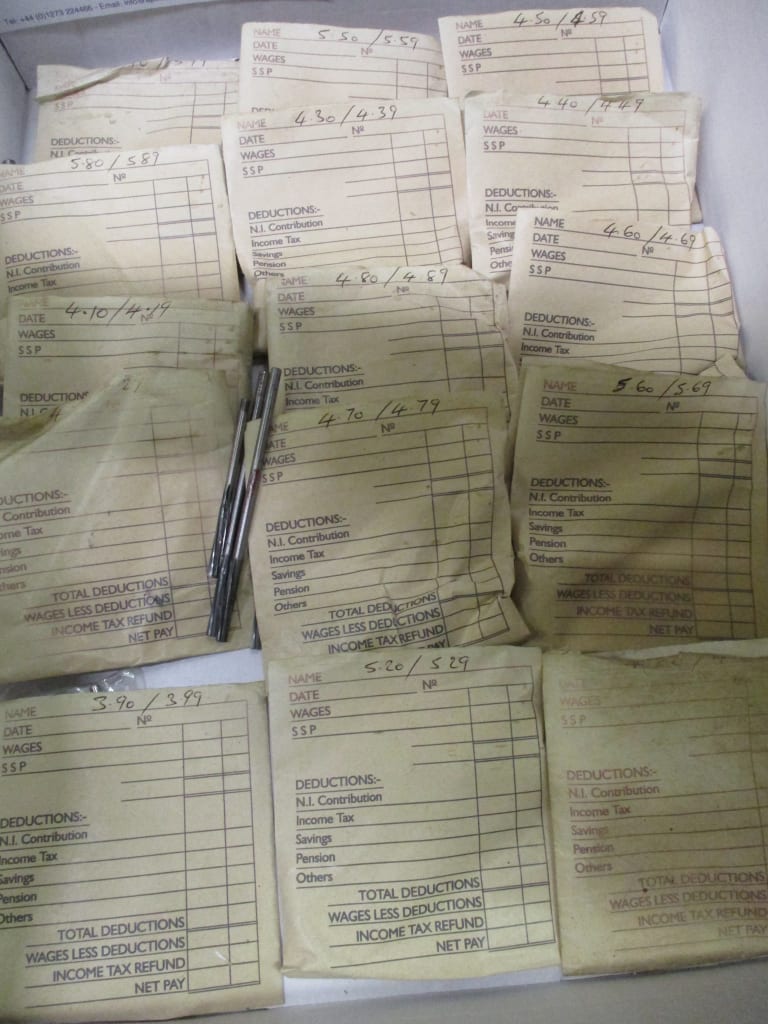 Tel: +44 (0)1273 224466 - Email: info@
SSP
DEDUCTIONS:-
NAME 5.50 / 5.59
DATE Nº
WAGES
SSP
NAME 4.50 / 4.59
DATE Nº
WAGES
SSP
5.80 / 5.89
NAME Nº
DATE
WAGES
SSP
DEDUCTIONS:-
N.I. Contribution
Income Tax
NAME 4.30 / 4.39
DATE Nº
WAGES
SSP
DEDUCTIONS:-
N.I. Contribution
Income Tax
Savings
Pension
Others
NAME 4.40 / 4.49
DATE Nº
WAGES
SSP
DEDUCTIONS:-
N.I. Contribution
Income
Savings
Pensi
Othe
NAME 4.60 / 4.69
DATE Nº
WAGES
SSP
DEDUCTIONS:-
N.I. Contribution
Income Tax
NAME
DATE 4.10 / 4.19
WAGES Nº
SSP
DEDUCTION
NAME 4.80 / 4.89
DATE Nº
WAGES
SSP
DEDUCTIONS:-
N.I. Contribution
Income Tax
DUCTIONS:-
Contribution
ome Tax
ings
nsion
thers
TOTAL DEDUCTIONS
WAGES LESS DEDUCTIONS
INCOME TAX REFUND
NET PAY
AME 4.70 / 4.79
DATE Nº
WAGES
SSP
DEDUCTIONS:-
N.I. Contribution
Income Tax
Savings
Pension
Others
TOTAL DEDUCTIONS
WAGES LESS DEDUCTIONS
INCOME TAX REFUND
NAME 5.60 / 5.69
DATE Nº
WAGES
SSP
DEDUCTIONS:-
N.I. Contribution
Income Tax
Savings
Pension
Others
TOTAL DEDUCTIONS
WAGES LESS DEDUCTIONS
INCOME TAX REFUND
NET PAY
NAME 3.90 / 3.99
DATE Nº
WAGES
SSP
DEDUCTIONS:-
N.I. Contribution
Income Tax
Savings
Pension
Others
TOTAL DEDUCTIONS
WAGES LESS DEDUCTIONS
INCOME TAX REFUND
NET PAY
NAME 5.20 / 5.29
DATE Nº
WAGES
SSP
DEDUCTIONS:-
N.I. Contribution
Income Tax
Savings
Pension
Others
TOTAL DEDUCTIONS
WAGES LESS DEDUCTIONS
INCOME TAX REFUND
NET PAY
WAGES
SSP
DEDUCTIONS:-
N.I. Contribution
Income Tax
Savings
Pension
Others
TOTAL DEDUCTIONS
WAGES LESS DEDUCTIONS
INCOME TAX REFUND
NET PAY